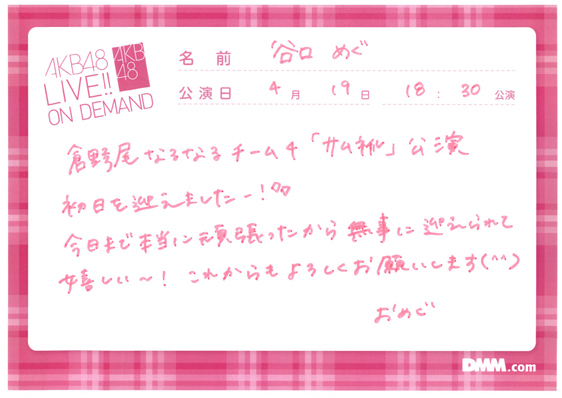 AKB48
LIVE!!
ON DEMAND
AKB
48
名前 谷口 めぐ
公演日 4月19日 18:30 公演
倉野尾なるなるチーム4「サムネイル」公演
初日を迎えましたー!
今日まで本当に頑張ったから無事に迎えられて
嬉しい〜! これからもよろしくお願いします(^^)
おめぐ
DMM.com